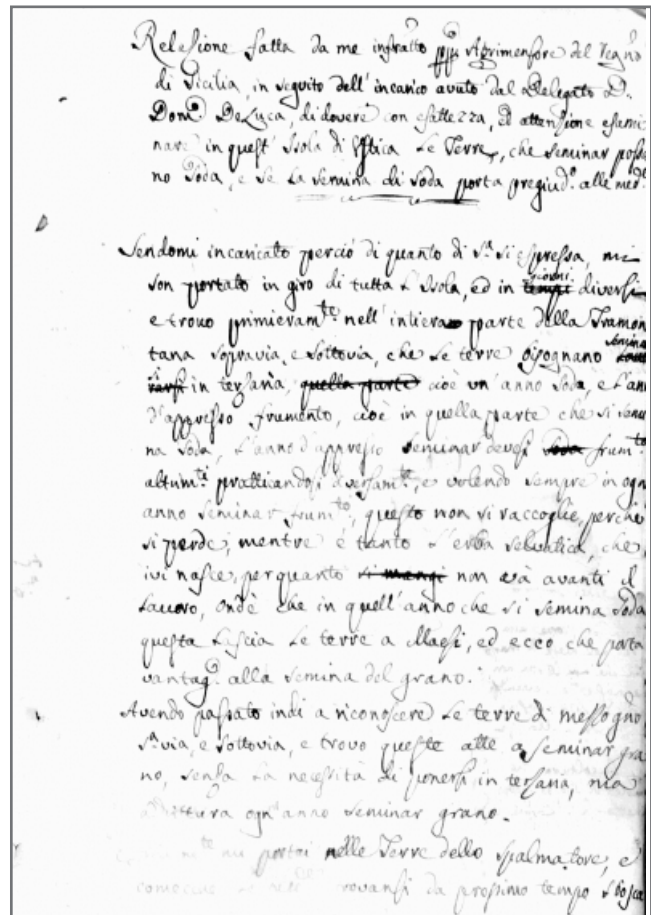 Relesione fatta da me infratto Agrimensore del Regno
di Sicilia, in seguito dell'incarico avuto dal Delegato D.
Dom.º DeLuca, di dovere con esattezza, ed attensione esami
nare in quest'Isola di Ustica Le Terre, che seminar possa
no Soda, e se La Semina di Soda porta pregiud.º alle med.e
Sendomi incaricato perciò di quanto di S.a si espressa, mi
son portato in giro di tutta L'Isola, ed in tempi giorni diversi
e trovo primieram.te nell'intiera parte della Tramon
tana Sopravia, e Sottovia, che Le terre bisognano semina
rarsi si in tersaria, quella parte cioè un'anno Soda, e L'an
d'appresso frumento, cioè in quella parte che si semi
na Soda, L'anno d'appresso Seminar devesi soda frum.to
altum.ti pratticandosi diversam.te, e volendo sempre in ogn
anno Seminar frum.to, questo non si raccoglie, perche
si perde; mentre è tanto L'erba Selvatica, che
ivi nasce, per quanto si mangi non và avanti il
Lavoro, onde che in quell'anno che si semina Soda
questa Lascia Le terre a Maesi, ed ecco che porta
vantag.º alla semina del grano.
Avendo passato indi a riconoscere Le terre di messogno
S.a via, e Sottovia, e trovo queste atte a Seminar gra
no, Sensa La necessità di ponersi in tersana, ma
ogn'anno Seminar grano.
mi portai nelle Terre dello Spalmatore, e
Le trovansi da prossimo tempo sbosca